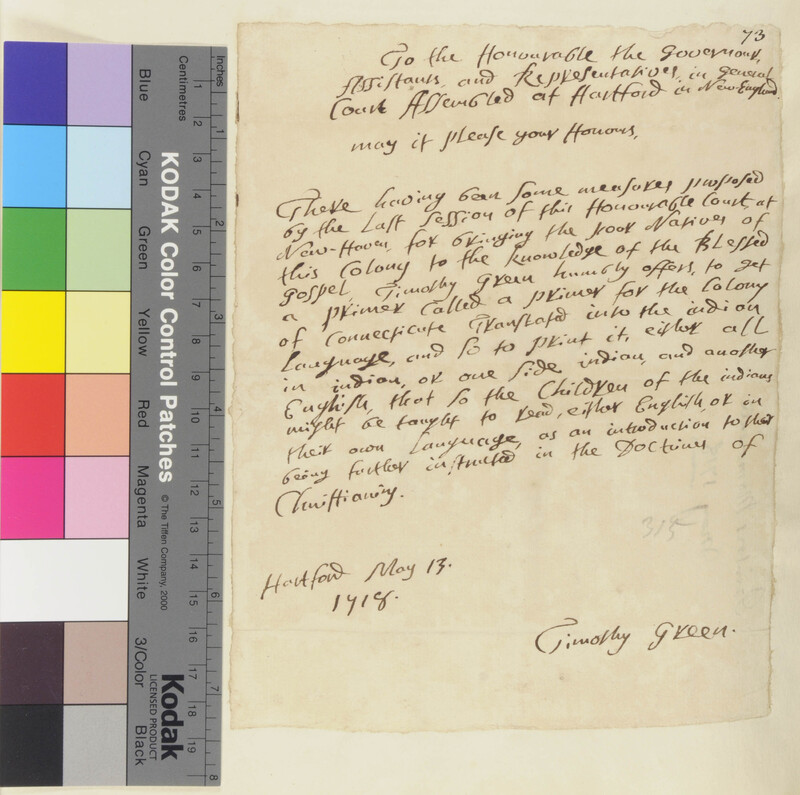 73
To the Honourable the Governour,
Assistants, and Representatives, in general
Court Assembled at Hartford in New-England.
may it please your Honours,
There having been some measures proposed
by the Last Session of this Honourable Court, at
New-Haven, for bringing the poor Natives of
this Colony to the knowledge of the Blessed
gospel, Timothy Green humbly offers, to get
a primer called a primer for the Colony
of Connecticute Translated into the indian
Language, and so to print it, either all
in indian, or one side indian, and another
English, that so the Children of the indians
might be taught to read, either English, or in
their own Language, as an introduction to their
being further instructed in the Doctrines of
Christianity.
315
Hartford May 13.
1718.
Timothy Green.
Inches
Centimetres
1 2 3 4 5 6 7 8 9 10 11 12 13 14 15 16 17 18 19
1 2 3 4 5 6 7 8
KODAK Color Control Patches
© The Tiffen Company, 2000
Kodak
LICENSED PRODUCT
Blue
Cyan
Green
Yellow
Red
Magenta
White
3/Color
Black